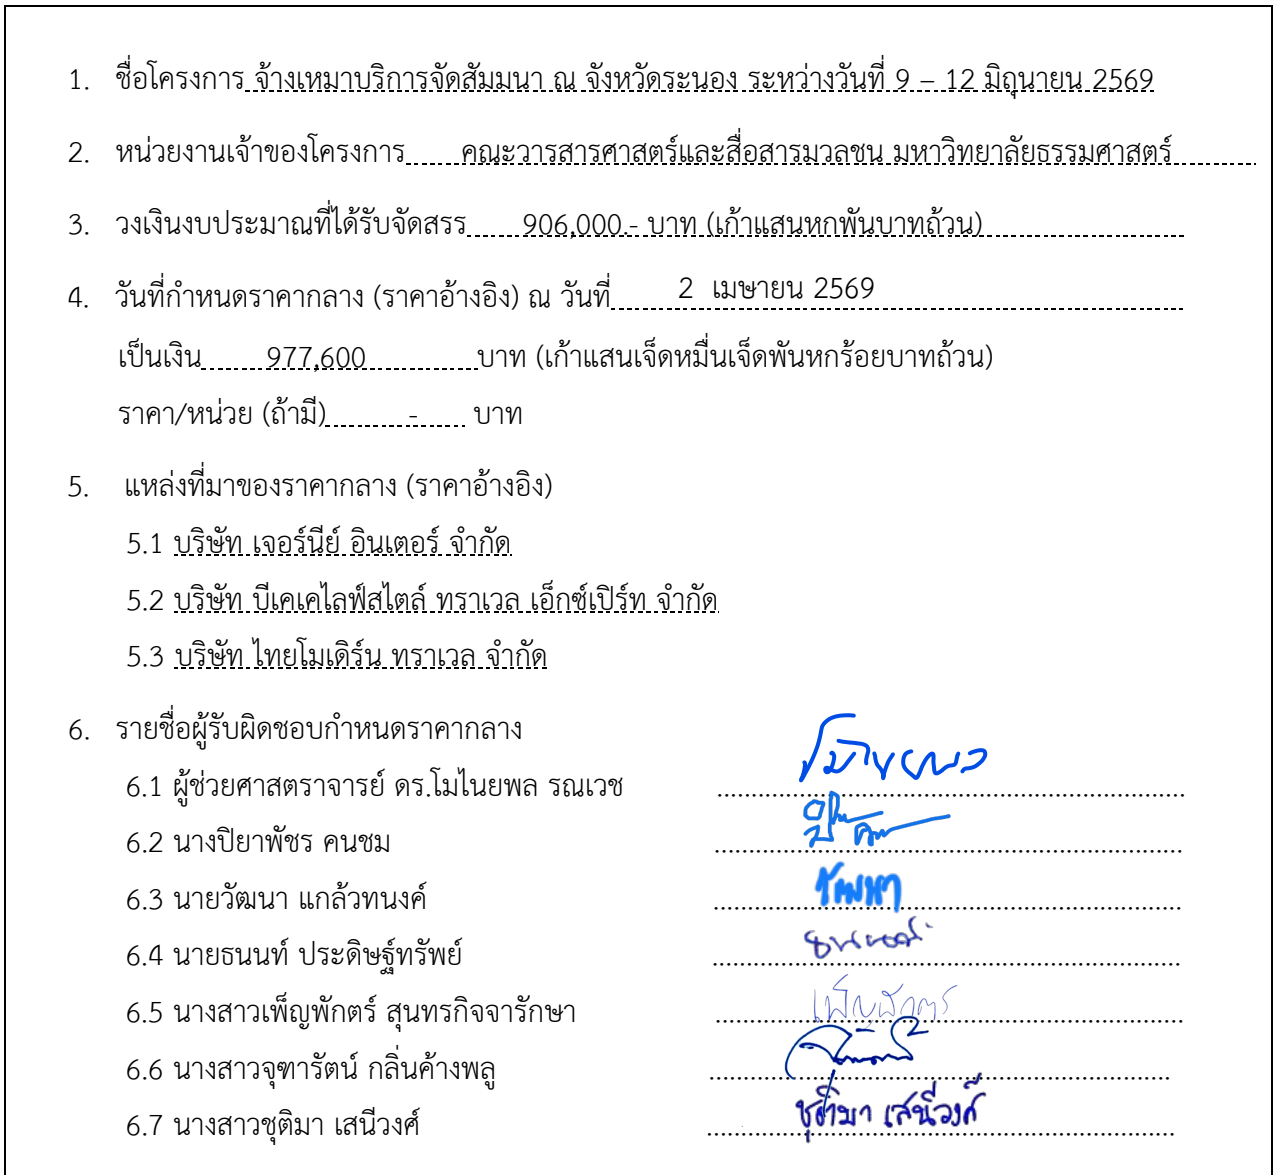 1. ชื่อโครงการ จ้างเหมาบริการจัดสัมมนา ณ จังหวัดระนอง ระหว่างวันที่ 9 – 12 มิถุนายน 2569
2. หน่วยงานเจ้าของโครงการ คณะวารสารศาสตร์และสื่อสารมวลชน มหาวิทยาลัยธรรมศาสตร์
3. วงเงินงบประมาณที่ได้รับจัดสรร 906,000.- บาท (เก้าแสนหกพันบาทถ้วน)
4. วันที่กำหนดราคากลาง (ราคาอ้างอิง) ณ วันที่ 2 เมษายน 2569
เป็นเงิน 977,600 บาท (เก้าแสนเจ็ดหมื่นเจ็ดพันหกร้อยบาทถ้วน)
ราคา/หน่วย (ถ้ามี) - บาท
5. แหล่งที่มาของราคากลาง (ราคาอ้างอิง)
5.1 บริษัท เจอร์นีย์ อินเตอร์ จำกัด
5.2 บริษัท บีเคเคไลฟ์สไตล์ ทราเวล เอ็กซ์เปิร์ท จำกัด
5.3 บริษัท ไทยโมเดิร์น ทราเวล จำกัด
6. รายชื่อผู้รับผิดชอบกำหนดราคากลาง
6.1 ผู้ช่วยศาสตราจารย์ ดร.โมไนยพล รณเวช
6.2 นางปิยาพัชร คนชม
6.3 นายวัฒนา แกล้วทนงค์ วัฒนา
6.4 นายธนนท์ ประดิษฐ์ทรัพย์
6.5 นางสาวเพ็ญพักตร์ สุนทรกิจจารักษา เพ็ญพักตร์
6.6 นางสาวจุฑารัตน์ กลิ่นค้างพลู
6.7 นางสาวชุติมา เสนีวงศ์ ชุติมา เสนีวงศ์